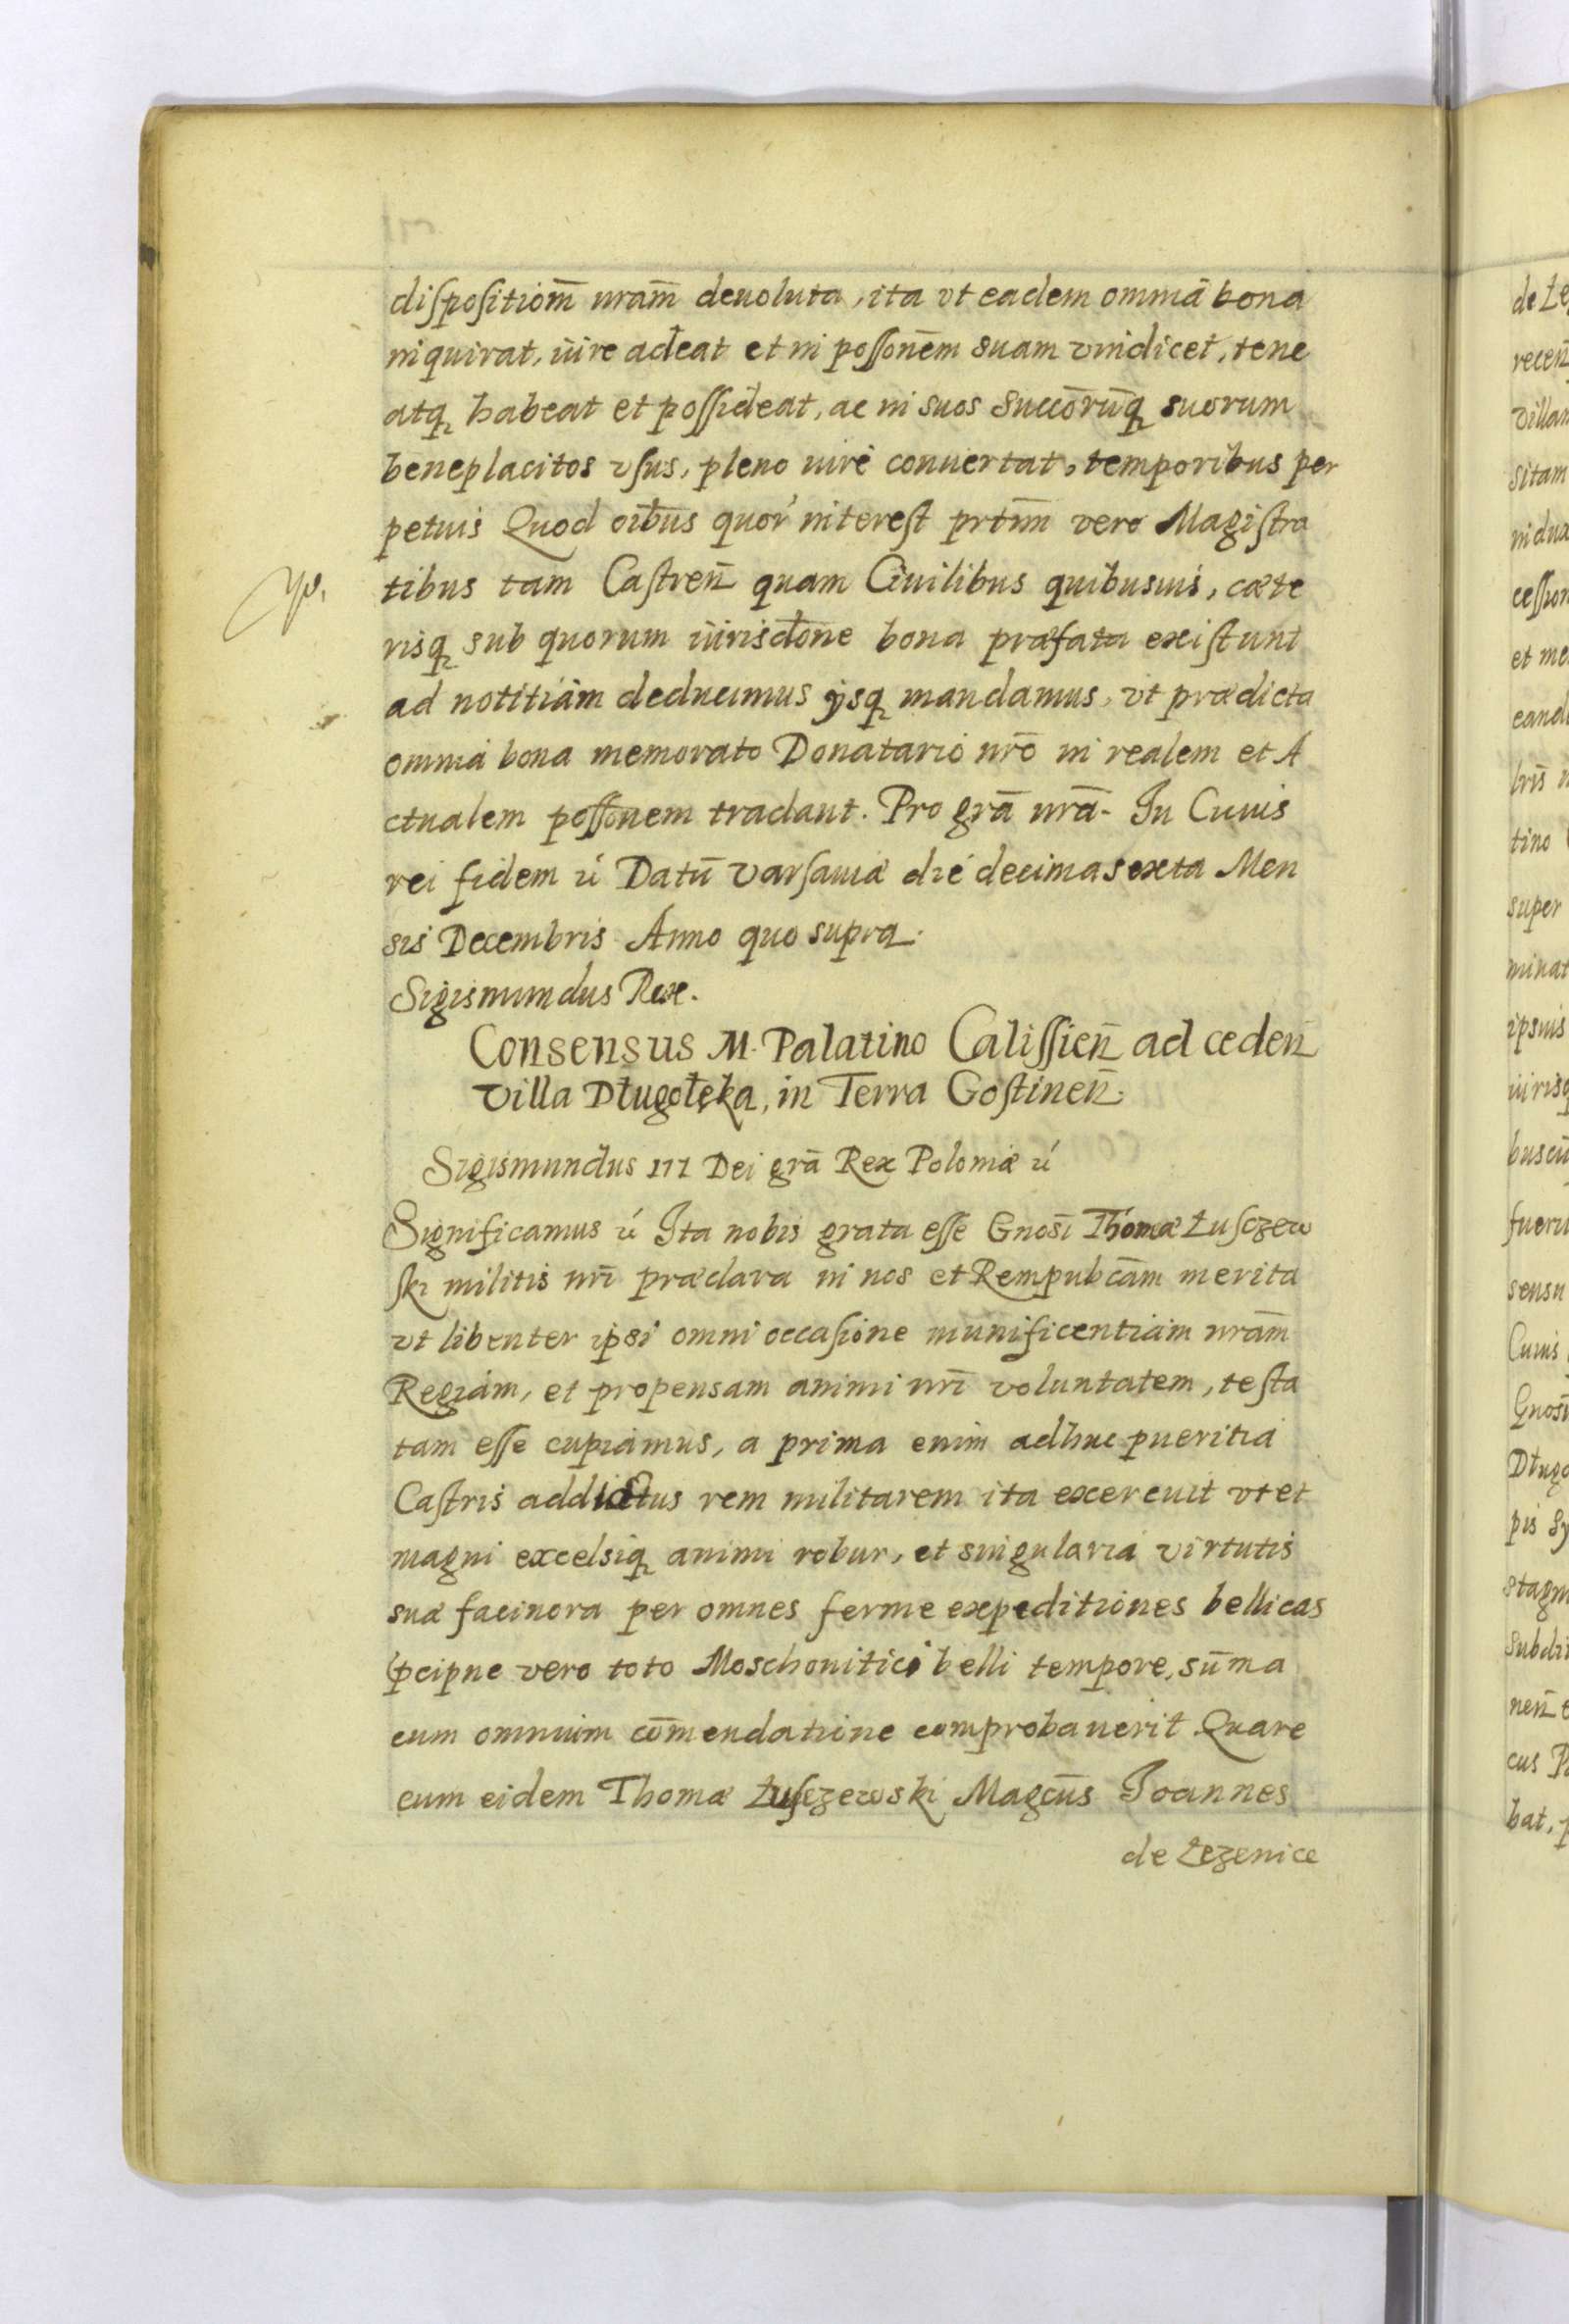 dispositiom̄ nram̄ deuoluta, ita vt eadem omnia bona
inquirat, iure adeat et in possonēm suam vindicet, tene
atq habeat et possideat, ac in suos Succorūq suorum
beneplacitos vsus, pleno iure conuertat, temporibus per
petuis Quod oibus quor interest prtim vero Magistra
tibus tam Castren̄ quam Ciuilibus quibusuis, cæte
risq sub quorum iurisdone bona præfata existunt
ad notitiam deducimus ijsq mandamus, vt prædicta
omnia bona memorato Donatario nrō in realem et A
ctualem possonem tradant. Pro grā nrā. In Cuius
rei fidem ć Datū Varsauiæ die decima sexta Men
sis Decembris Anno quo supra.
Sigismundus Rex.
Consensus M. Palatino Calissien̄ ad ceden̄
Villa Długołęka, in Terra Gostinen̄.
Sigismundus III Dei grā Rex Poloniæ ć
Significamus ć Ita nobis grata esse Gnosī Thomæ Łusczew
ski militis nrī præclara in nos et Rempubcām merita
vt libenter ipsi omni occasione munificentiam nrām
Regiam, et propensam animi nrī voluntatem, testa
tam esse cupiamus, a prima enim adhuc pueritia
Castris addictus rem militarem ita exercuit vt et
magni excelsiq animi robur, et singularia virtutis
suæ facinora per omnes ferme expeditiones bellicas
pcipue vero toto Moschouitici belli tempore, sūma
cum omnium cōmendatione comprobauerit Quare
cum eidem Thomæ Łusczewski Magcūs Joannes
de Łezenice